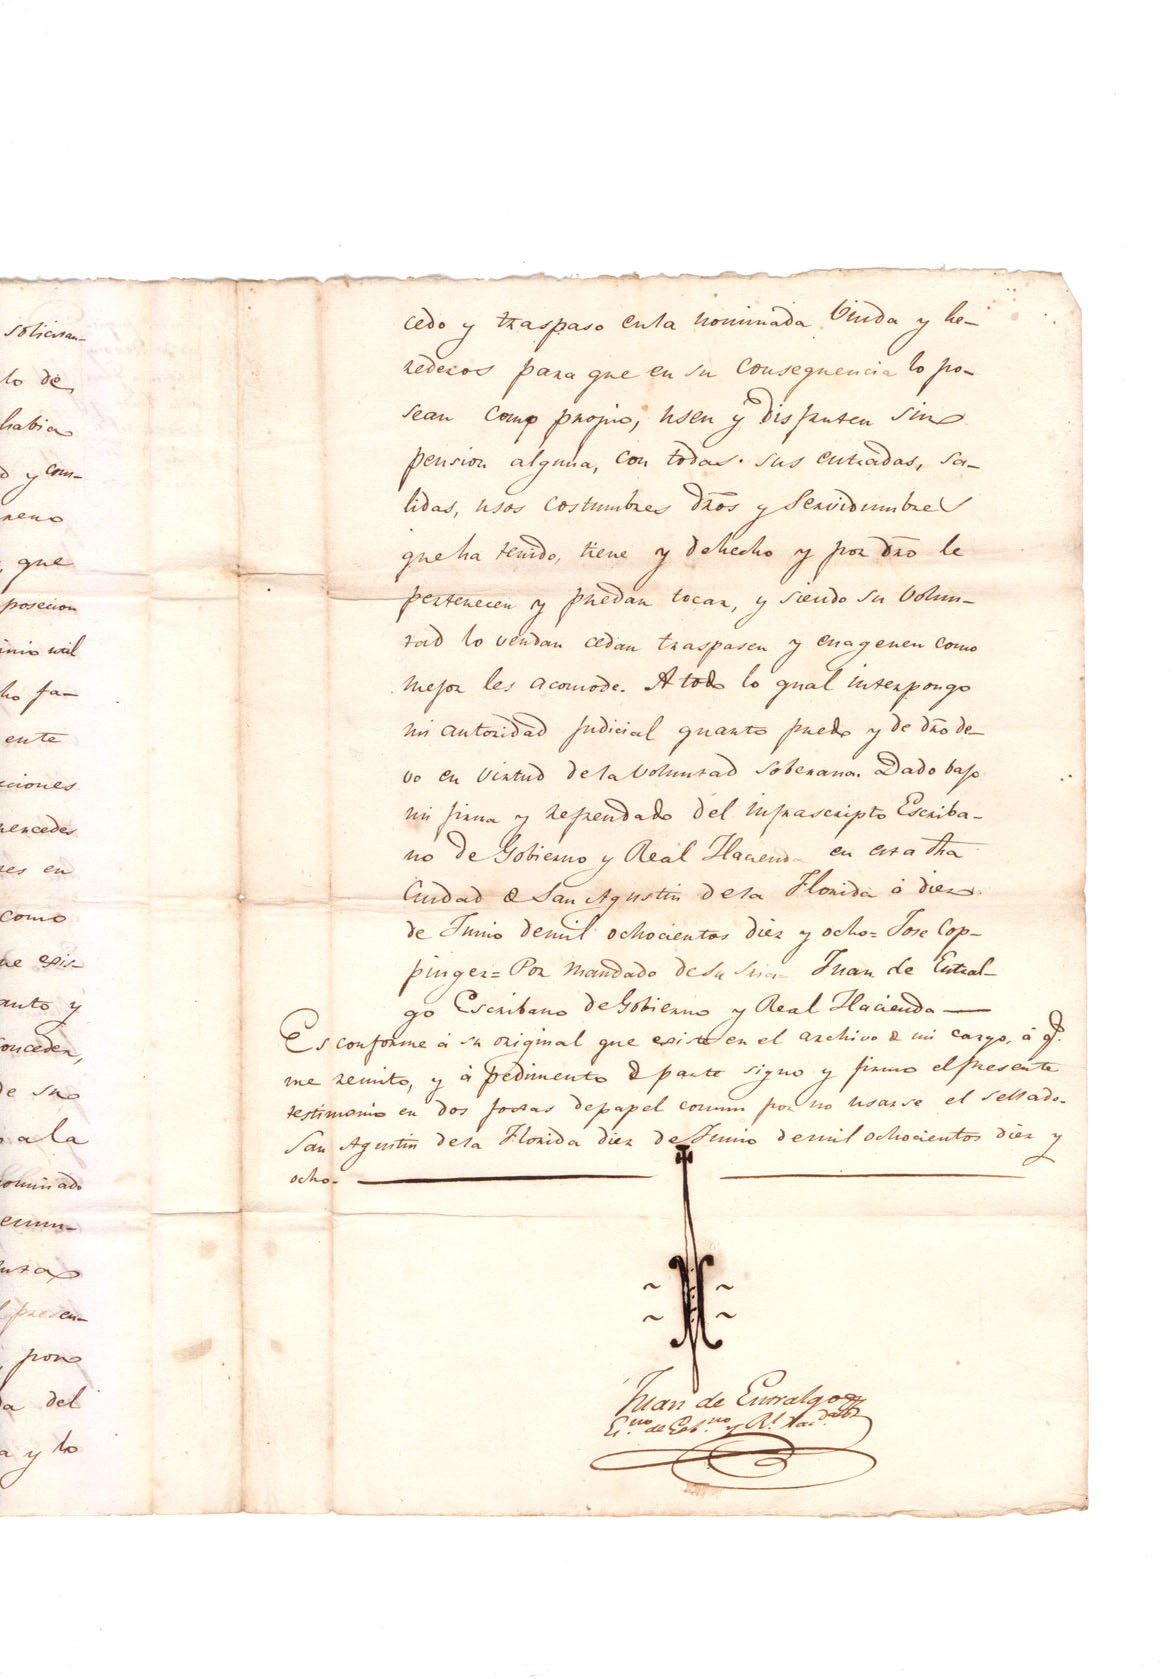 solicitan-
lo de
habia
d y com-
rreno
, que
posecion
inio util
ho fa-
ente
cciones
mercedes
res en
como
ue exis-
anto y
conceder,
de su
o a la
nominado
enun-
l presen-
, por
da del
a y lo
cedo y traspaso en la nominada Viuda y he-
rederos para que en su consequencia lo po-
sean como propio, usen y disfruten sin
pension alguna, con todas sus entradas, sa-
lidas, usos costumbres dros y servidumbres
que ha tenido, tiene y de hecho y por dro le
pertenecen y puedan tocar, y siendo su volun-
tad lo vendan cedan traspasen y enagenen como
mejor les acomode. A todo lo qual interpongo
mi autoridad judicial quanto puedo y de dro de-
vo en virtud de la voluntad soberana. Dado bajo
mi firma y refrendado del infrascripto Escriba-
no de Gobierno y Real Hacienda en esta dha
Ciudad de San Agustin de la Florida á diez
de Junio de mil ochocientos diez y ocho = Jose Cop-
pinger = Por mandado de su Sria = Juan de Entral-
go Escribano de Gobierno y Real Hacienda —
Es conforme á su original que existe en el archivo de mi cargo, á q.e
me remito, y á pedimento de parte signo y firmo el presente
testimonio en dos foxas de papel comun por no usarse el sellado.
San Agustin de la Florida diez de Junio de mil ochocientos diez y
ocho.
Juan de Entralgo
Es.no de Gob.no y R.l Hac.da